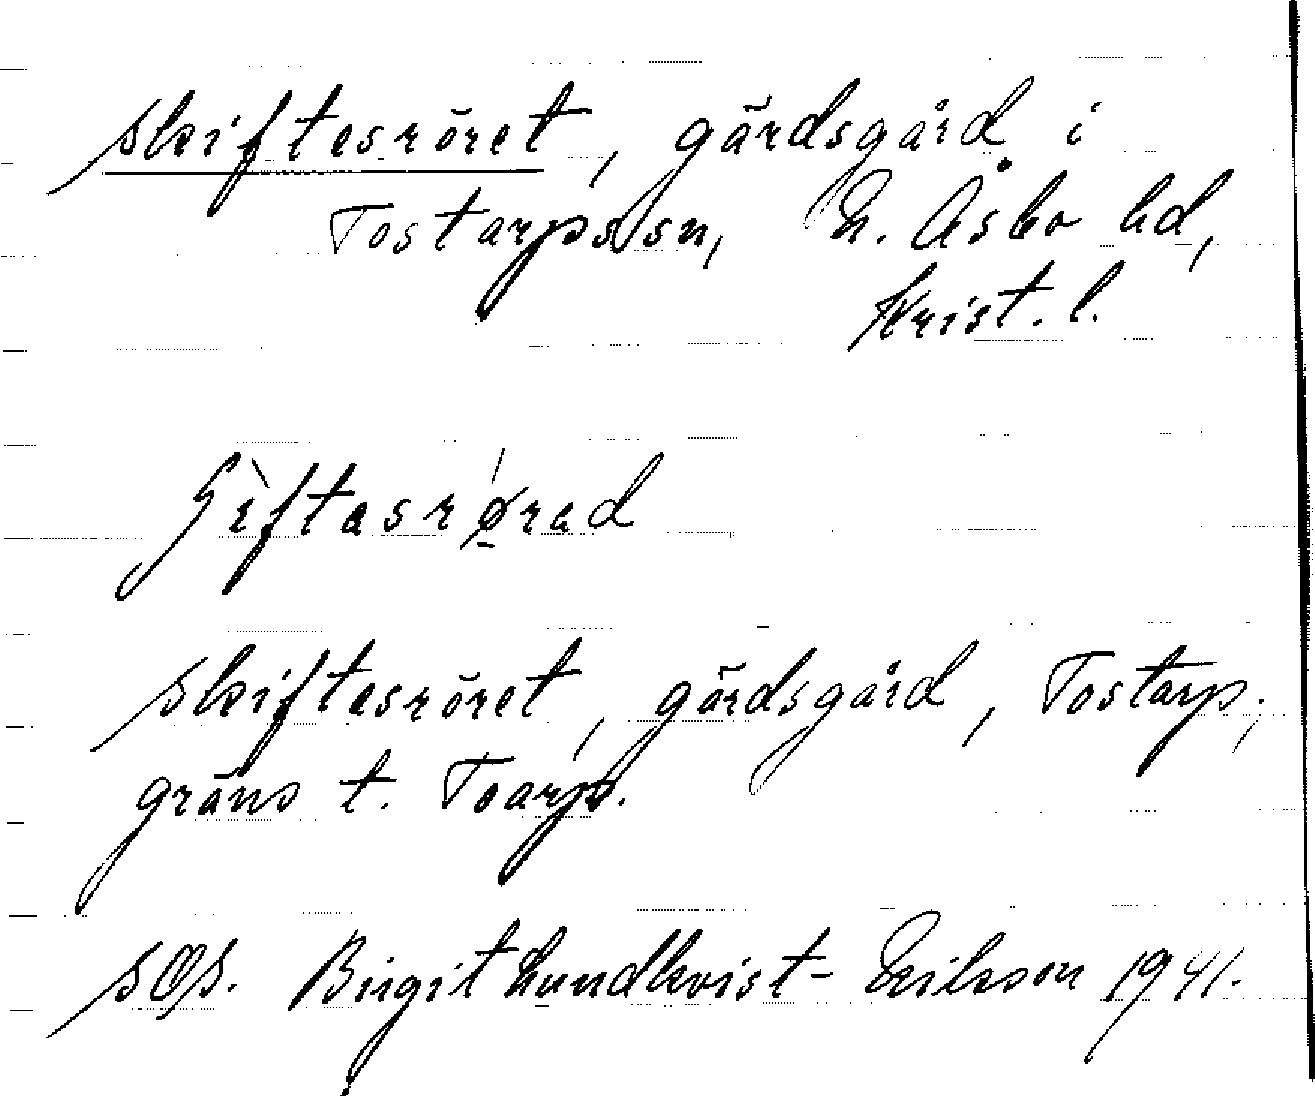 skiftesröret, gärdsgård i
Tostarps sn, N. Åsbo hd,
Krist. l.
ʃìftasrǿ̱rad
skiftesröret, gärdsgård, Tostarp;
gräns t. Toarp.
Birgit Lundkvist-Eriksson 1941.